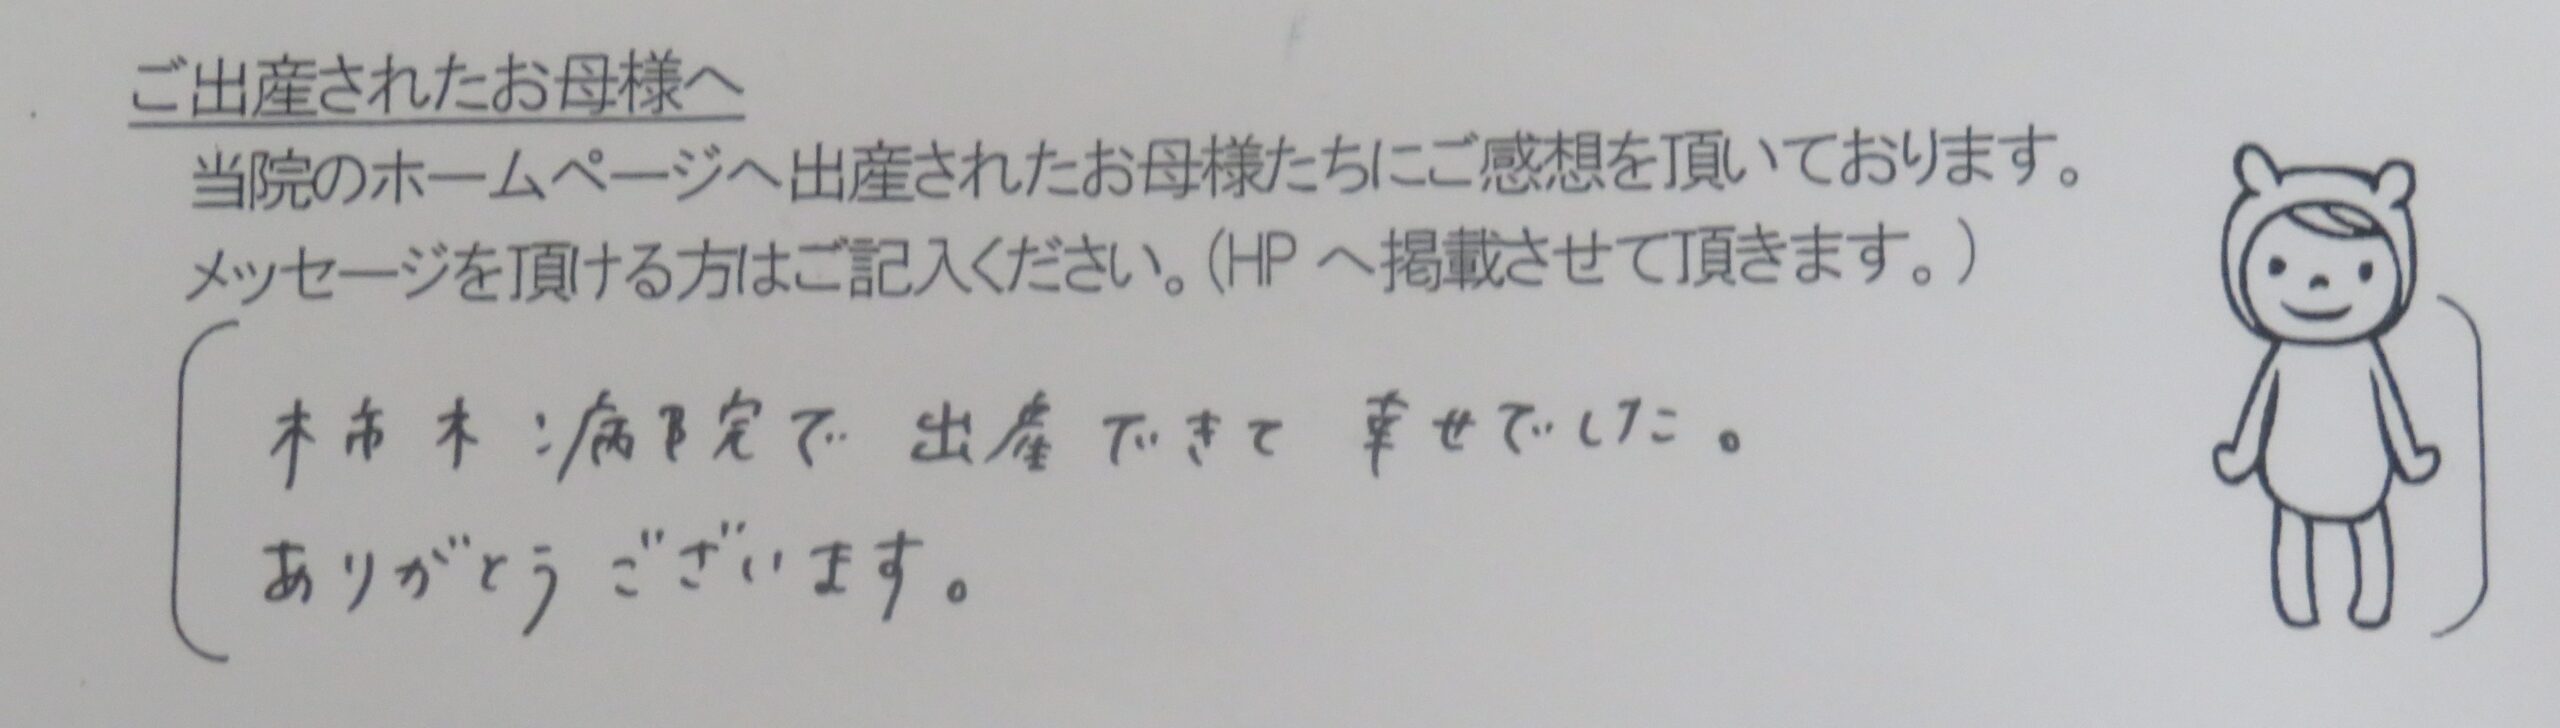 ご出産されたお母様へ
当院のホームページへ出産されたお母様たちにご感想を頂いております。
メッセージを頂ける方はご記入ください。(HP へ掲載させて頂きます。)
柿木病院で 出産できて 幸せでした。
ありがとうございます。